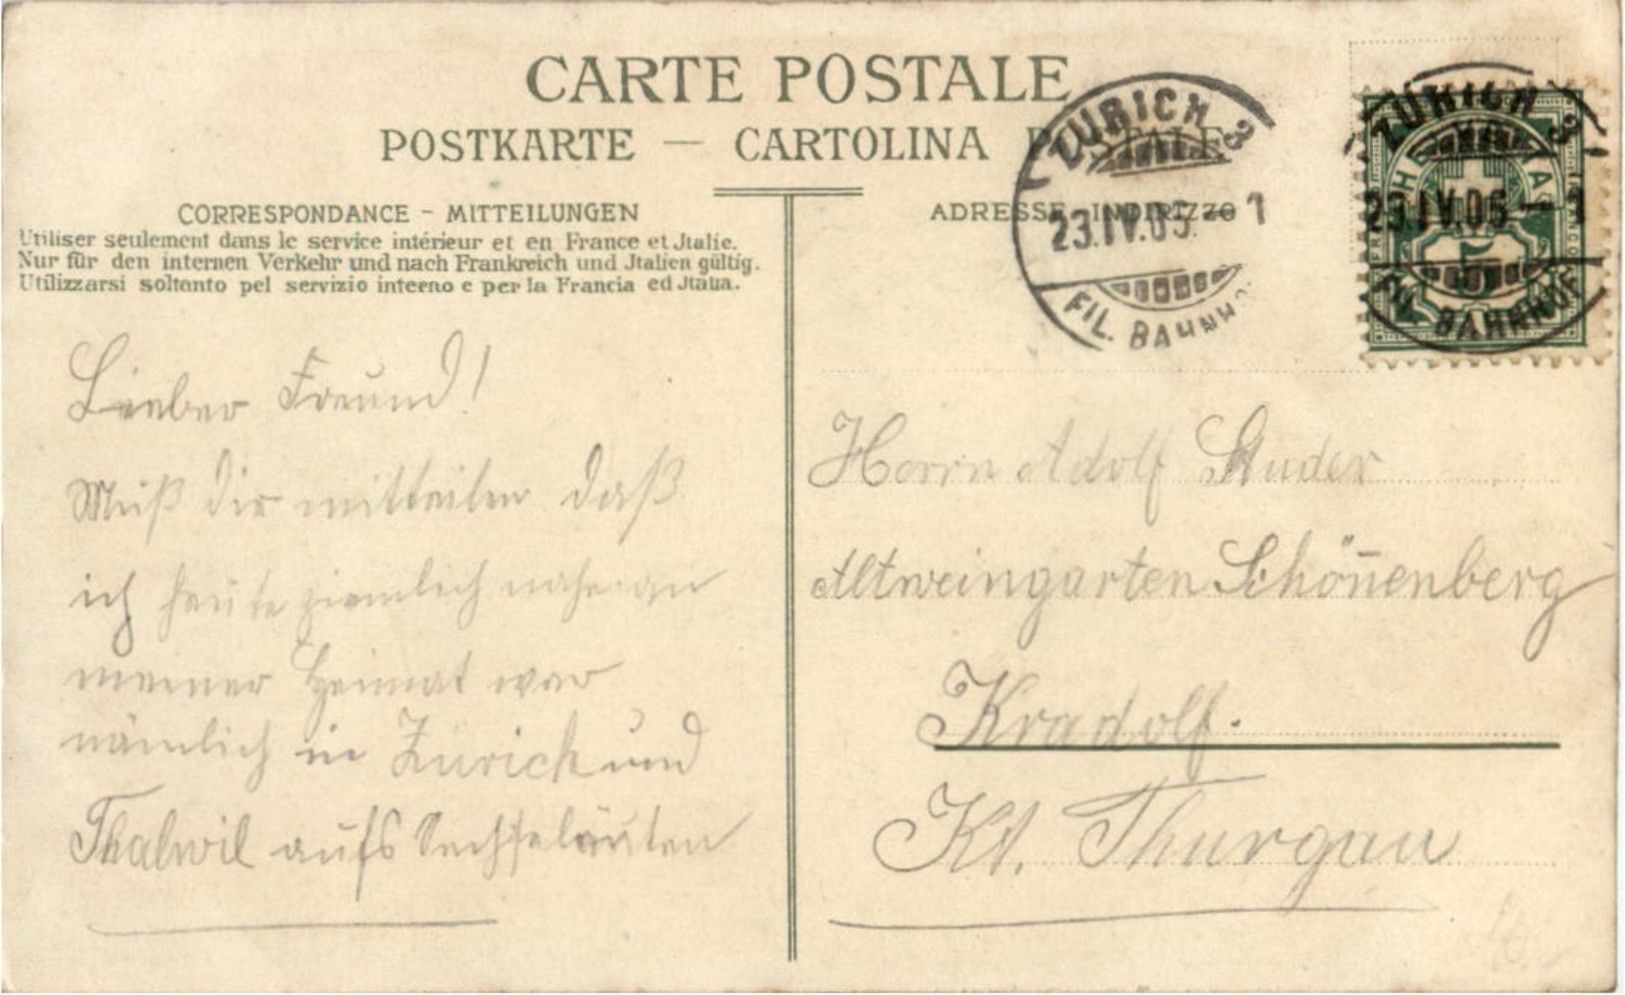 CARTE POSTALE
POSTKARTE — CARTOLINA POSTALE
CORRESPONDANCE - MITTEILUNGEN
Utiliser seulement dans le service intérieur et en France et Jtalie.
Nur für den internen Verkehr und nach Frankreich und Jtalien gültig.
Utilizzarsi soltanto pel servizio interno e per la Francia ed Jtalia.
Lieber Freund!
Muß dir mitteilen daß
ich heute ziemlich nahe an
meiner Heimat war
nämlich in Zürich und
Thalwil aufs Sechseläuten
ADRESSE - INDIRIZZO
ZÜRICH 3
23.IV.06. - 1
FIL. BAHNHOF
ZÜRICH 3
23.IV.06 - 1
FIL. BAHNHOF
5
Herrn Adolf Studer
Altweingarten Schönenberg
Kradolf.
Kt. Thurgau